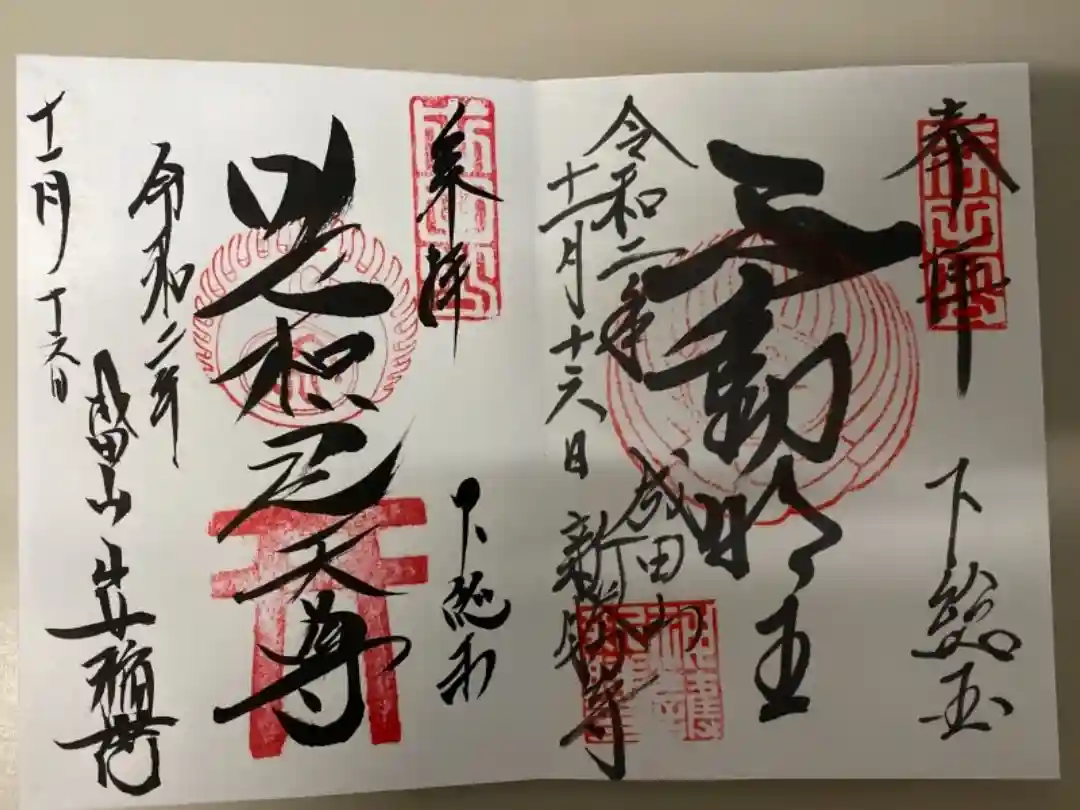 奉拝
下総国
不動明王
令和二年
十一月十六日
成田山
新勝寺
奉拝
下総国
荼枳尼天尊
令和二年
十一月十六日
成田山
出世稲荷